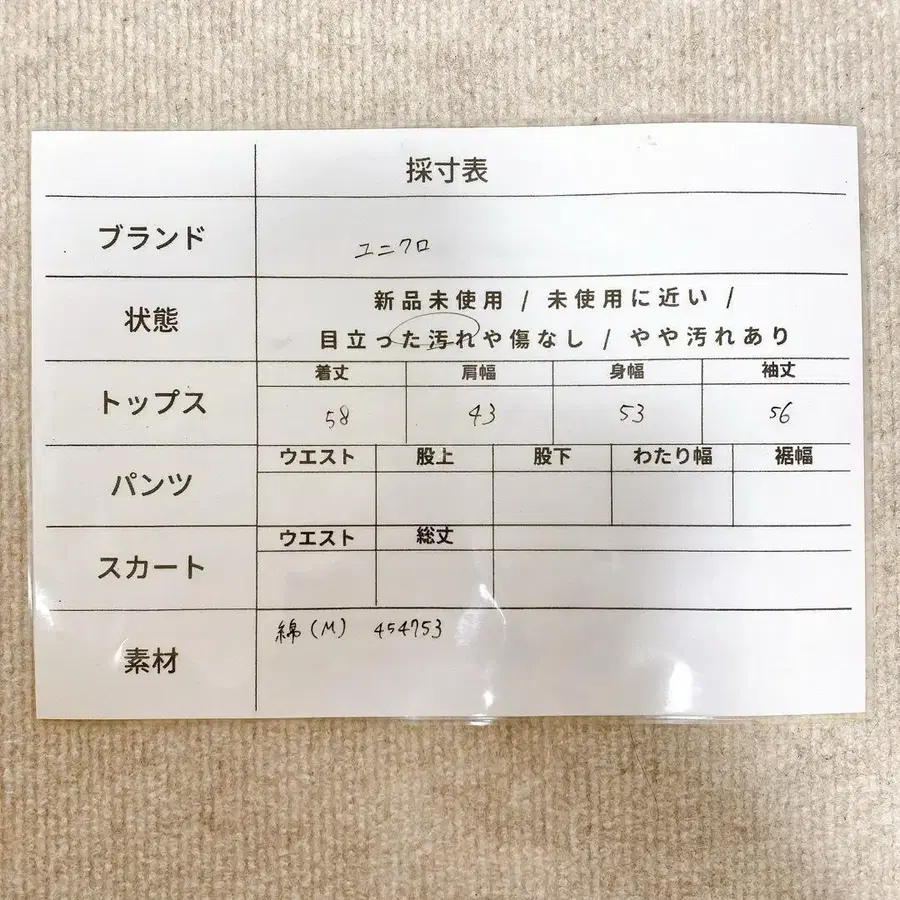 採寸表
ブランド
ユニクロ
状態
新品未使用 / 未使用に近い /
目立った汚れや傷なし / やや汚れあり
トップス
着丈 肩幅 身幅 袖丈
58 43 53 56
パンツ
ウエスト 股上 股下 わたり幅 裾幅
スカート
ウエスト 総丈
素材
綿(M) 454753